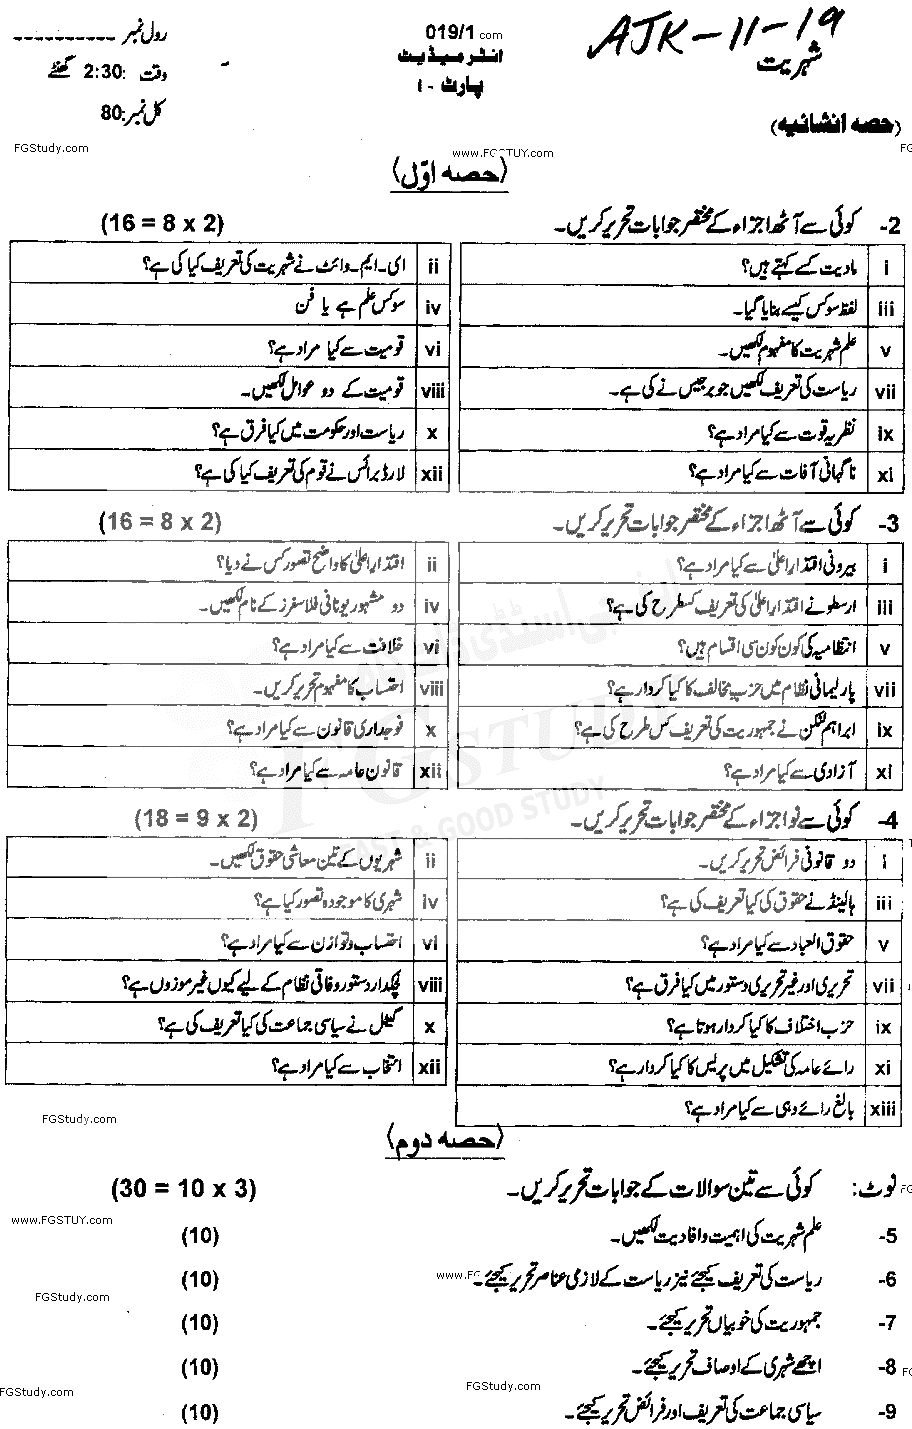 AJK-11-19
رول نمبر ----------
019/1 com
شہریت
انٹرمیڈیٹ
وقت :2:30 گھنٹے
پارٹ - I
کل نمبر:80
(حصہ انشائیہ)
FGStudy.com
www.FGSTUY.com
(حصہ اوّل)
2- کوئی سے آٹھ اجزاء کے مختصر جوابات تحریر کریں۔ (16 = 8 x 2)
i مادیت کسے کہتے ہیں؟ ii ای۔ایم۔وائٹ نے شہریت کی تعریف کیا کی ہے؟
iii لفظ سوکس کیسے بنایا گیا۔ iv سوکس علم ہے یا فن
v علم شہریت کا مفہوم لکھیں۔ vi قومیت سے کیا مراد ہے؟
vii ریاست کی تعریف لکھیں جو برجیس نے کی ہے۔ viii قومیت کے دو عوامل لکھیں۔
ix نظریہ قوت سے کیا مراد ہے؟ x ریاست اور حکومت میں کیا فرق ہے؟
xi ناگہانی آفات سے کیا مراد ہے؟ xii لارڈ برائس نے قوم کی تعریف کیا کی ہے؟
3- کوئی سے آٹھ اجزاء کے مختصر جوابات تحریر کریں۔ (16 = 8 x 2)
i بیرونی اقتدار اعلیٰ سے کیا مراد ہے؟ ii اقتدار اعلیٰ کا واضح تصور کس نے دیا؟
iii ارسطو نے اقتدار اعلیٰ کی تعریف کسطرح کی ہے؟ iv دو مشہور یونانی فلاسفرز کے نام لکھیں۔
v انتظامیہ کی کون کون سی اقسام ہیں؟ vi خلافت سے کیا مراد ہے؟
vii پارلیمانی نظام میں حزب مخالف کا کیا کردار ہے؟ viii احتساب کا مفہوم تحریر کریں۔
ix ابراہم لنکن نے جمہوریت کی تعریف کس طرح کی ہے؟ x فوجداری قانون سے کیا مراد ہے؟
xi آزادی سے کیا مراد ہے؟ xii قانون عامہ سے کیا مراد ہے؟
FGSTUDY
EAST & GOOD STUDY
4- کوئی سے نو اجزاء کے مختصر جوابات تحریر کریں۔ (18 = 9 x 2)
i دو قانونی فرائض تحریر کریں۔ ii شہریوں کے تین معاشی حقوق لکھیں۔
iii ہالینڈ نے حقوق کی کیا تعریف کی ہے؟ iv شہری کا موجودہ تصور کیا ہے؟
v حقوق العباد سے کیا مراد ہے؟ vi احتساب و توازن سے کیا مراد ہے؟
vii تحریری اور غیر تحریری دستور میں کیا فرق ہے؟ viii لچکدار دستور وفاقی نظام کے لیے کیوں غیر موزوں ہے؟
ix حزب اختلاف کا کیا کردار ہوتا ہے؟ x گیٹل نے سیاسی جماعت کی کیا تعریف کی ہے؟
xi رائے عامہ کی تشکیل میں پریس کا کیا کردار ہے؟ xii انتخاب سے کیا مراد ہے؟
xiii بالغ رائے دہی سے کیا مراد ہے؟
FGStudy.com
(حصہ دوم)
نوٹ: کوئی سے تین سوالات کے جوابات تحریر کریں۔ (30 = 10 x 3)
www.FGSTUY.com
5- علم شہریت کی اہمیت و افادیت لکھیں۔ (10)
6- ریاست کی تعریف کیجئے نیز ریاست کے لازمی عناصر تحریر کیجئے۔ (10)
FGStudy.com
7- جمہوریت کی خوبیاں تحریر کیجئے۔ (10)
8- اچھے شہری کے اوصاف تحریر کیجئے۔ (10)
FGStudy.com
FGStudy.com
9- سیاسی جماعت کی تعریف اور فرائض تحریر کیجئے۔ (10)